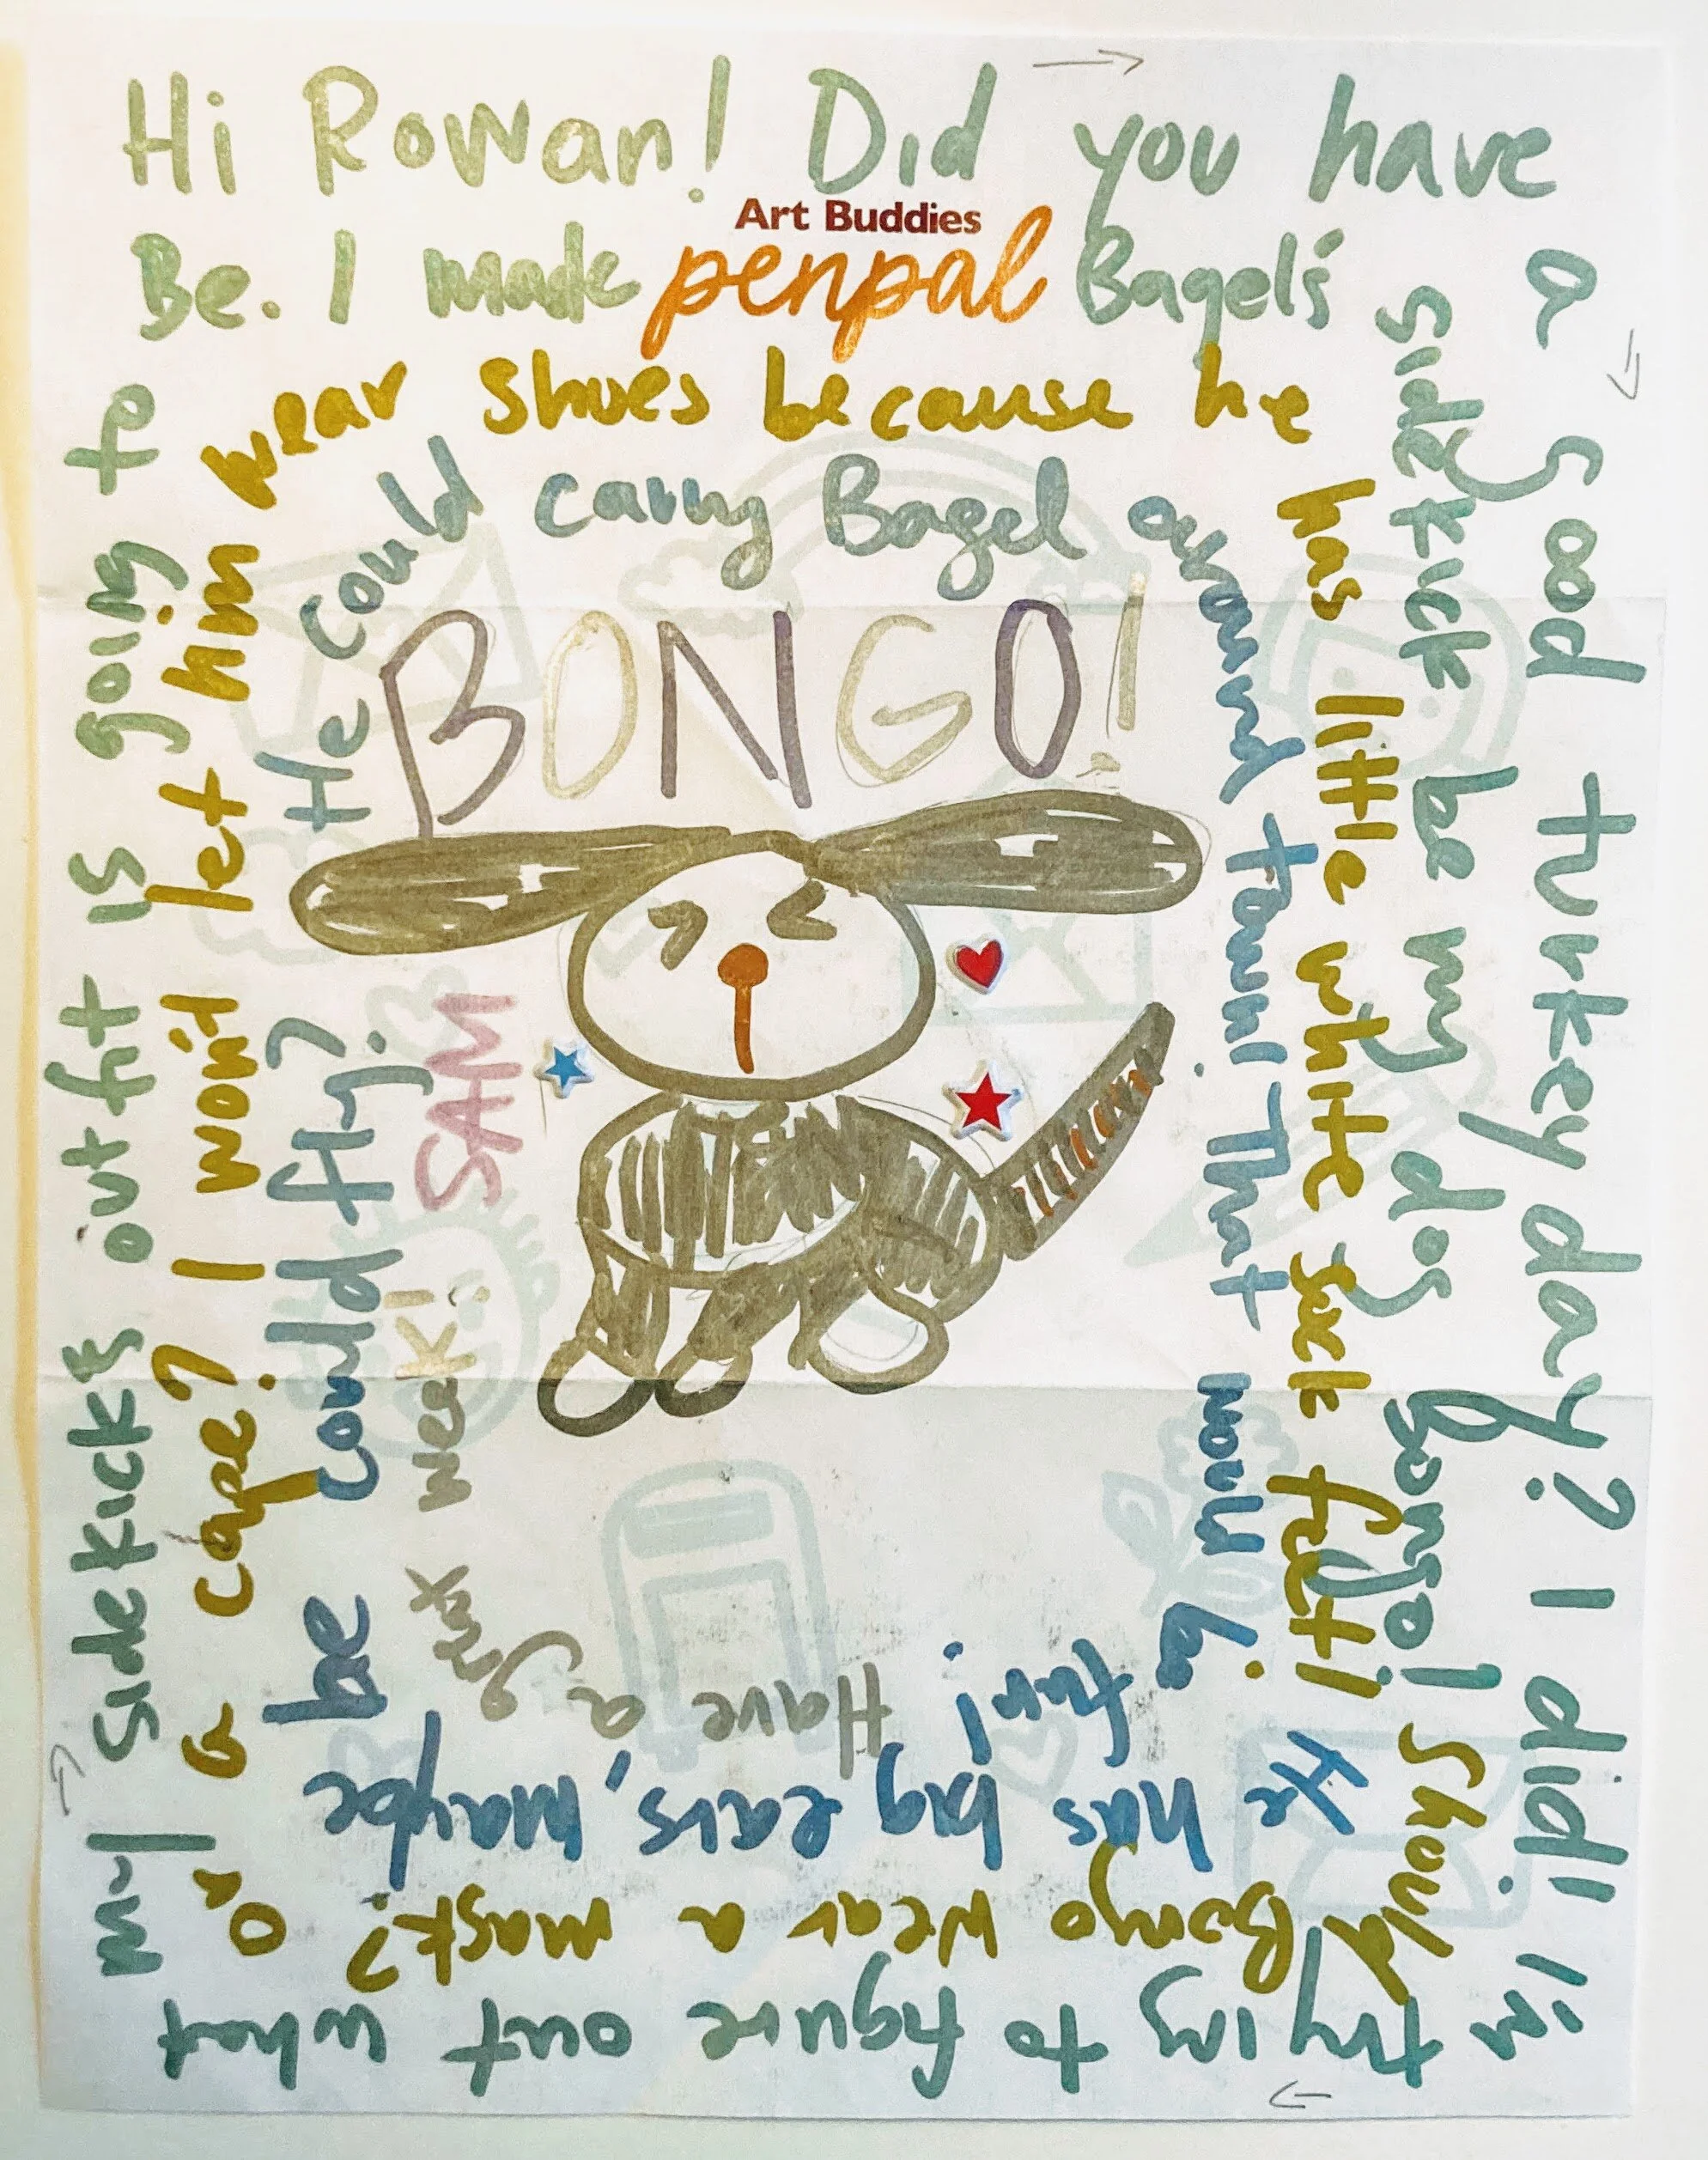 Hi Rowan! Did you have
a good turkey day? I did! I'm
trying to figure out what
my sidekicks outfit is going to
Be. I made Bagel's
sidekick be my dog Bongo! Should
Bongo wear a mask?
or a cape? I won't let him
wear shoes because he
has little white sock feet!
He has big ears, maybe
be could fly?
He could carry Bagel
around town! That would be
fun! Have a
great week!
SAM
Art Buddies
penpal
BONGO!